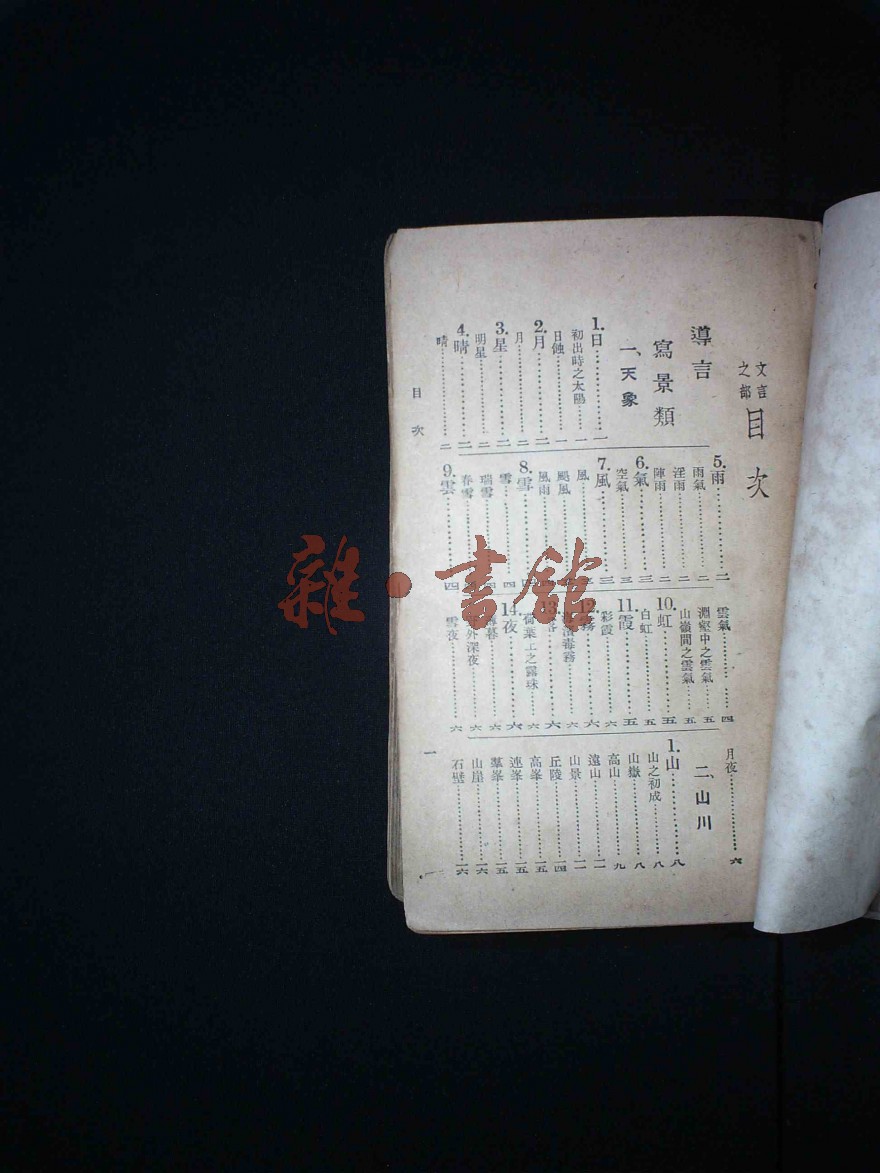 文言之部 目次
導言
寫景類
一、天象
1.日……一
初出時之太陽……一
日蝕……一
2.月……二
月……二
3.星……二
明星……二
4.晴……二
晴……二
5.雨……二
雨氣……二
淫雨……二
陣雨……二
6.氣……三
空氣……三
7.風……三
風
颶風
風雨
8.雪
雪……四
瑞雪
春雪
9.雲……四
雲氣……四
淵壑中之雲氣……五
山嶺間之雲氣……五
10.虹……五
白虹……五
11.霞……五
彩霞……六
12.霧……六
毒霧……六
13.……六
荷葉上之露珠……六
14.夜……六
暮……六
外深夜……六
雪夜……六
月夜……六
二、山川
1.山……八
山之初成……八
山嶽……八
高山……九
遠山……一一
山景……一一
丘陵……一四
高峯……一五
連峯……一五
羣峯……一五
山崖……一六
石壁……一六
目次
一
雜·書館